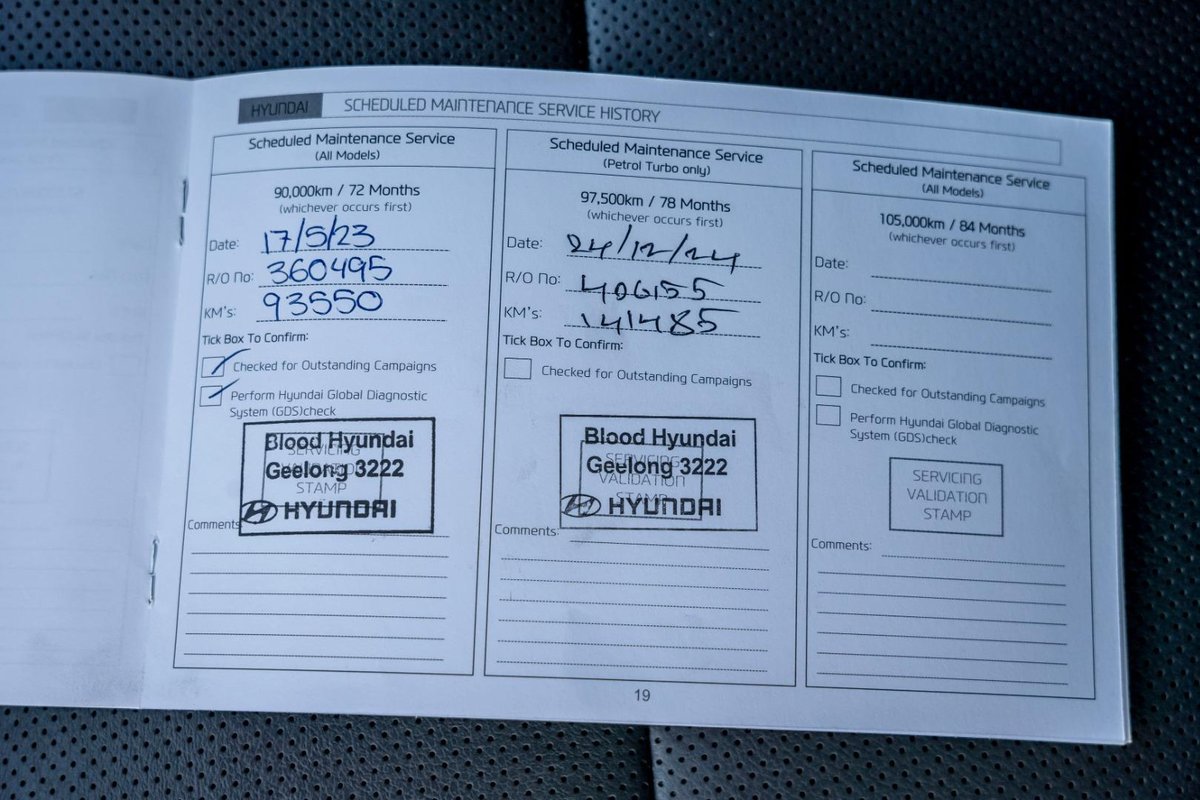 HYUNDAI SCHEDULED MAINTENANCE SERVICE HISTORY
Scheduled Maintenance Service
(All Models)
90,000km / 72 Months
(whichever occurs first)
Date: 17/5/23
R/O No: 360495
KM's: 93550
Tick Box To Confirm:
Checked for Outstanding Campaigns
Perform Hyundai Global Diagnostic
System (GDS)check
Blood Hyundai
SERVICING
Geelong 3222
STAMP
HYUNDAI
Comments
Scheduled Maintenance Service
(Petrol Turbo only)
97,500km / 78 Months
(whichever occurs first)
Date: 24/12/24
R/O No: 406155
KM's: 141485
Tick Box To Confirm:
Checked for Outstanding Campaigns
Blood Hyundai
SERVICING
Geelong 3222
VALIDATION
STAMP
HYUNDAI
Comments:
Scheduled Maintenance Service
(All Models)
105,000km / 84 Months
(whichever occurs first)
Date:
R/O No:
KM's:
Tick Box To Confirm:
Checked for Outstanding Campaigns
Perform Hyundai Global Diagnostic
System (GDS)check
SERVICING
VALIDATION
STAMP
Comments:
19